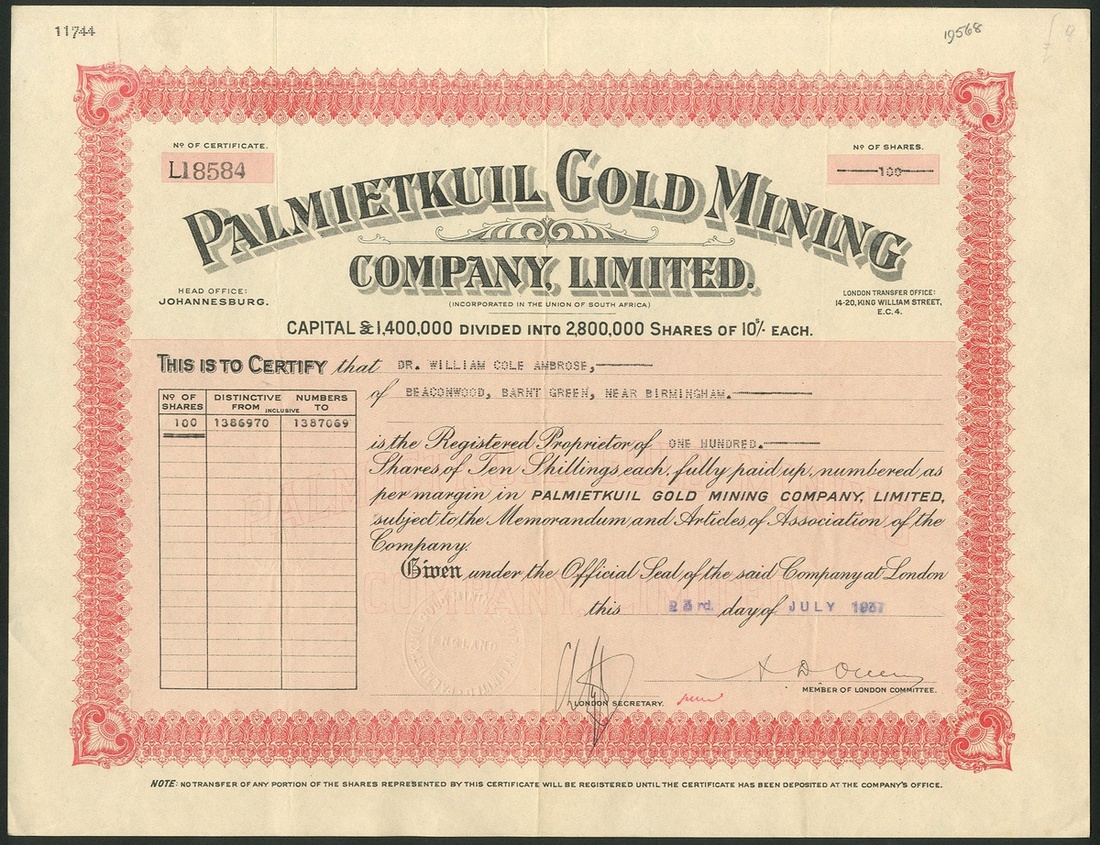 11744
19568
Nº OF CERTIFICATE.
L18584
Nº OF SHARES.
100
PALMIETKUIL GOLD MINING
COMPANY, LIMITED.
(INCORPORATED IN THE UNION OF SOUTH AFRICA)
HEAD OFFICE:
JOHANNESBURG.
LONDON TRANSFER OFFICE:
14-20, KING WILLIAM STREET,
E.C.4.
CAPITAL £1,400,000 DIVIDED INTO 2,800,000 SHARES OF 10s/- EACH.
THIS IS TO CERTIFY that DR. WILLIAM COLE AMBROSE,
of BEACONWOOD, BARNT GREEN, NEAR BIRMINGHAM.
Nº OF SHARES DISTINCTIVE NUMBERS
FROM INCLUSIVE TO
100 1386970 1387069
is the Registered Proprietor of ONE HUNDRED.
Shares of Ten Shillings each, fully paid up, numbered as
per margin in PALMIETKUIL GOLD MINING COMPANY, LIMITED,
subject to the Memorandum and Articles of Association of the
Company.
Given under the Official Seal of the said Company at London
this 23rd day of JULY 1937
ENGLAND
LONDON SECRETARY.
MEMBER OF LONDON COMMITTEE.
NOTE: NO TRANSFER OF ANY PORTION OF THE SHARES REPRESENTED BY THIS CERTIFICATE WILL BE REGISTERED UNTIL THE CERTIFICATE HAS BEEN DEPOSITED AT THE COMPANY'S OFFICE.